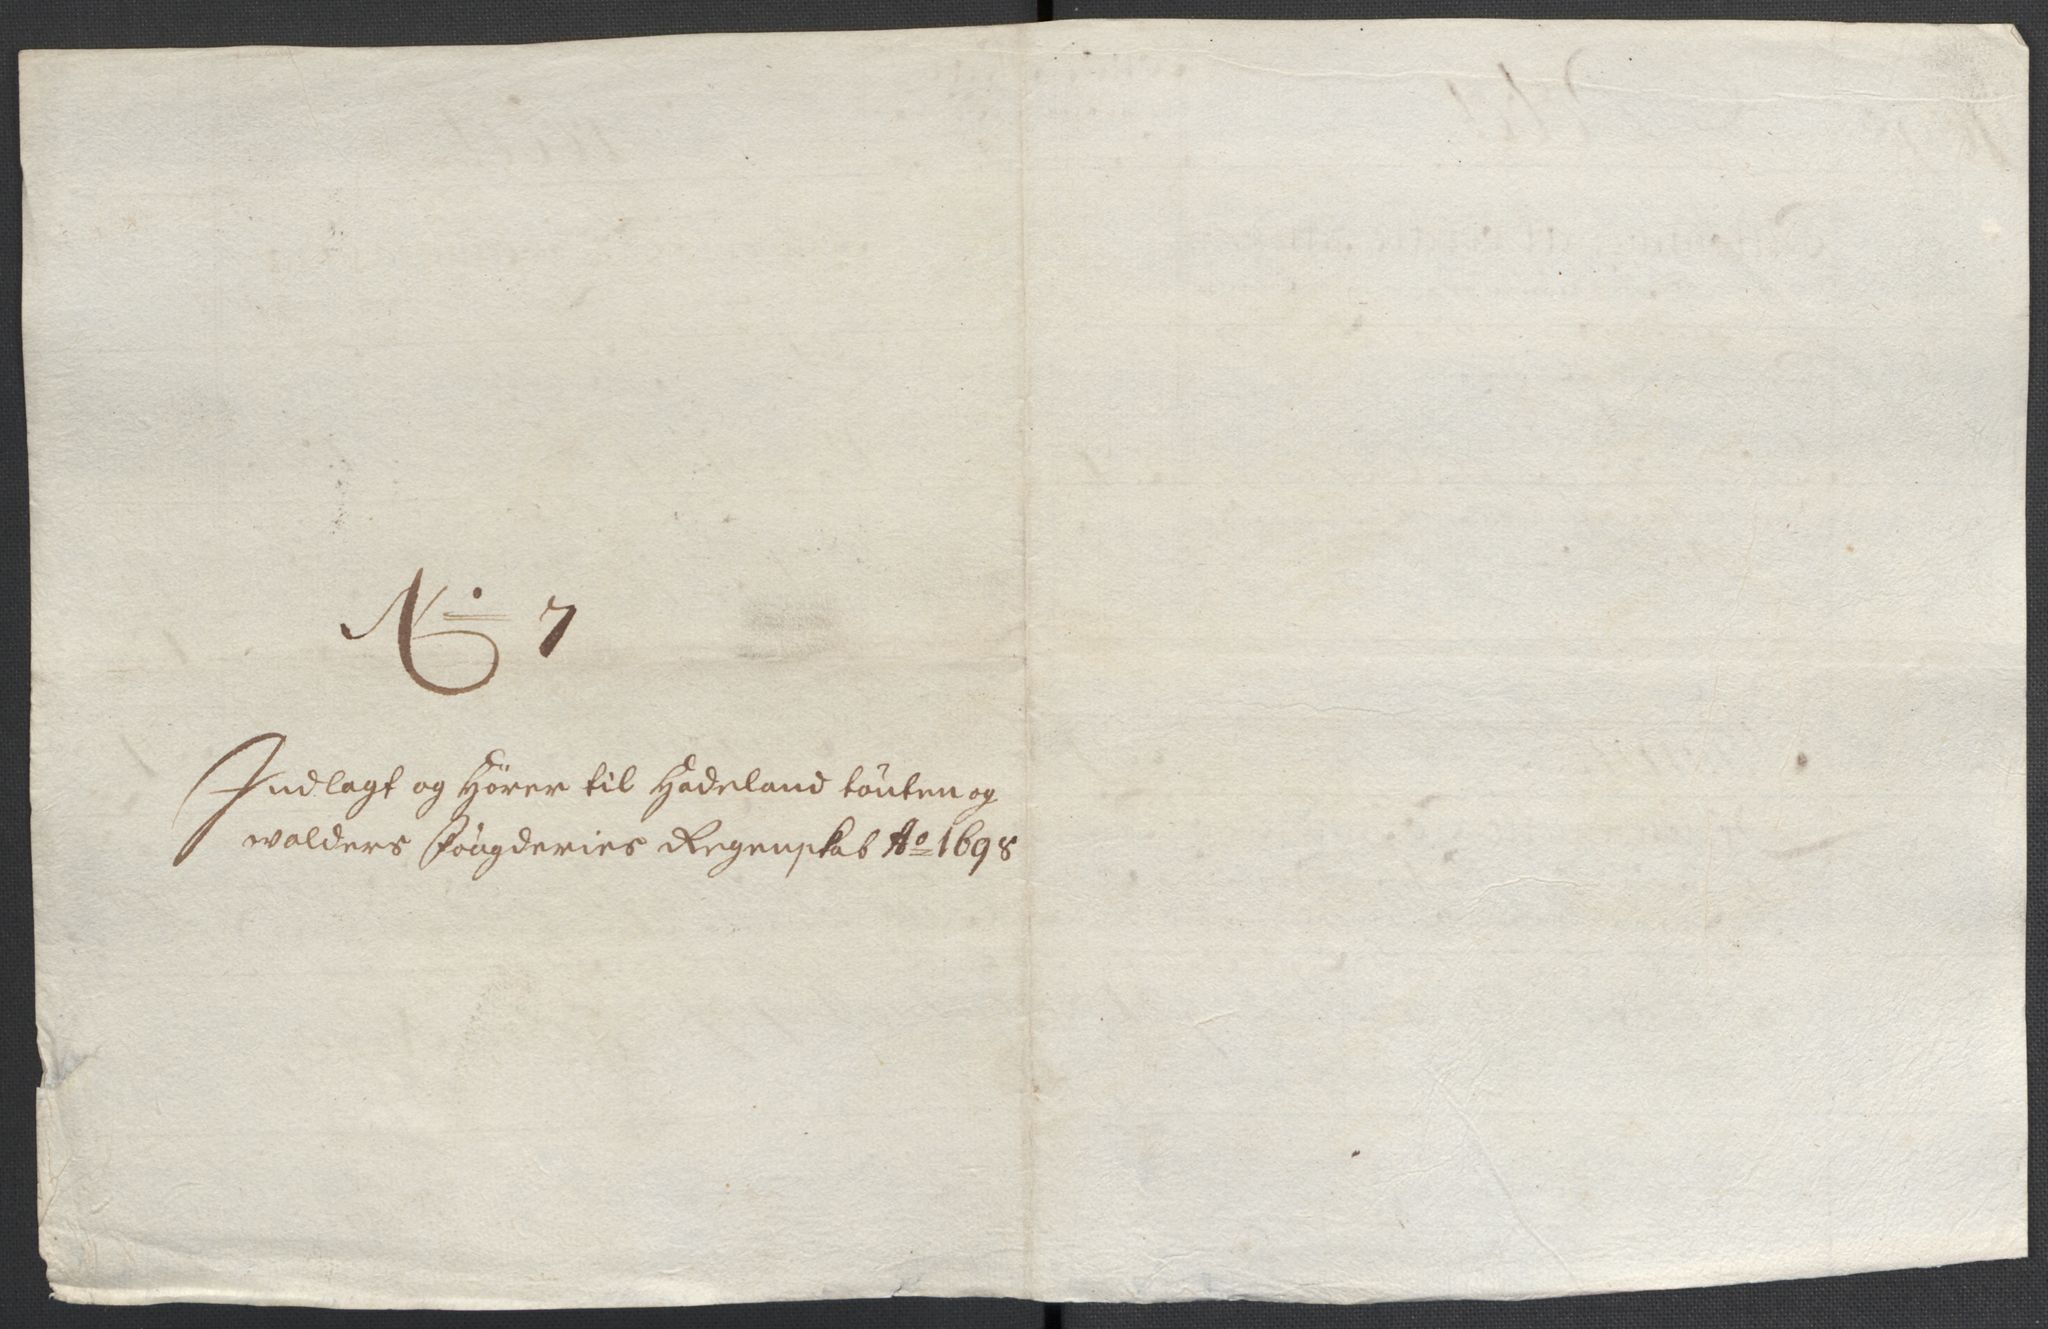 No 7
Indlagt og Hörer til Hadeland töuten og
walders fougderies Regenskab Ao 1698